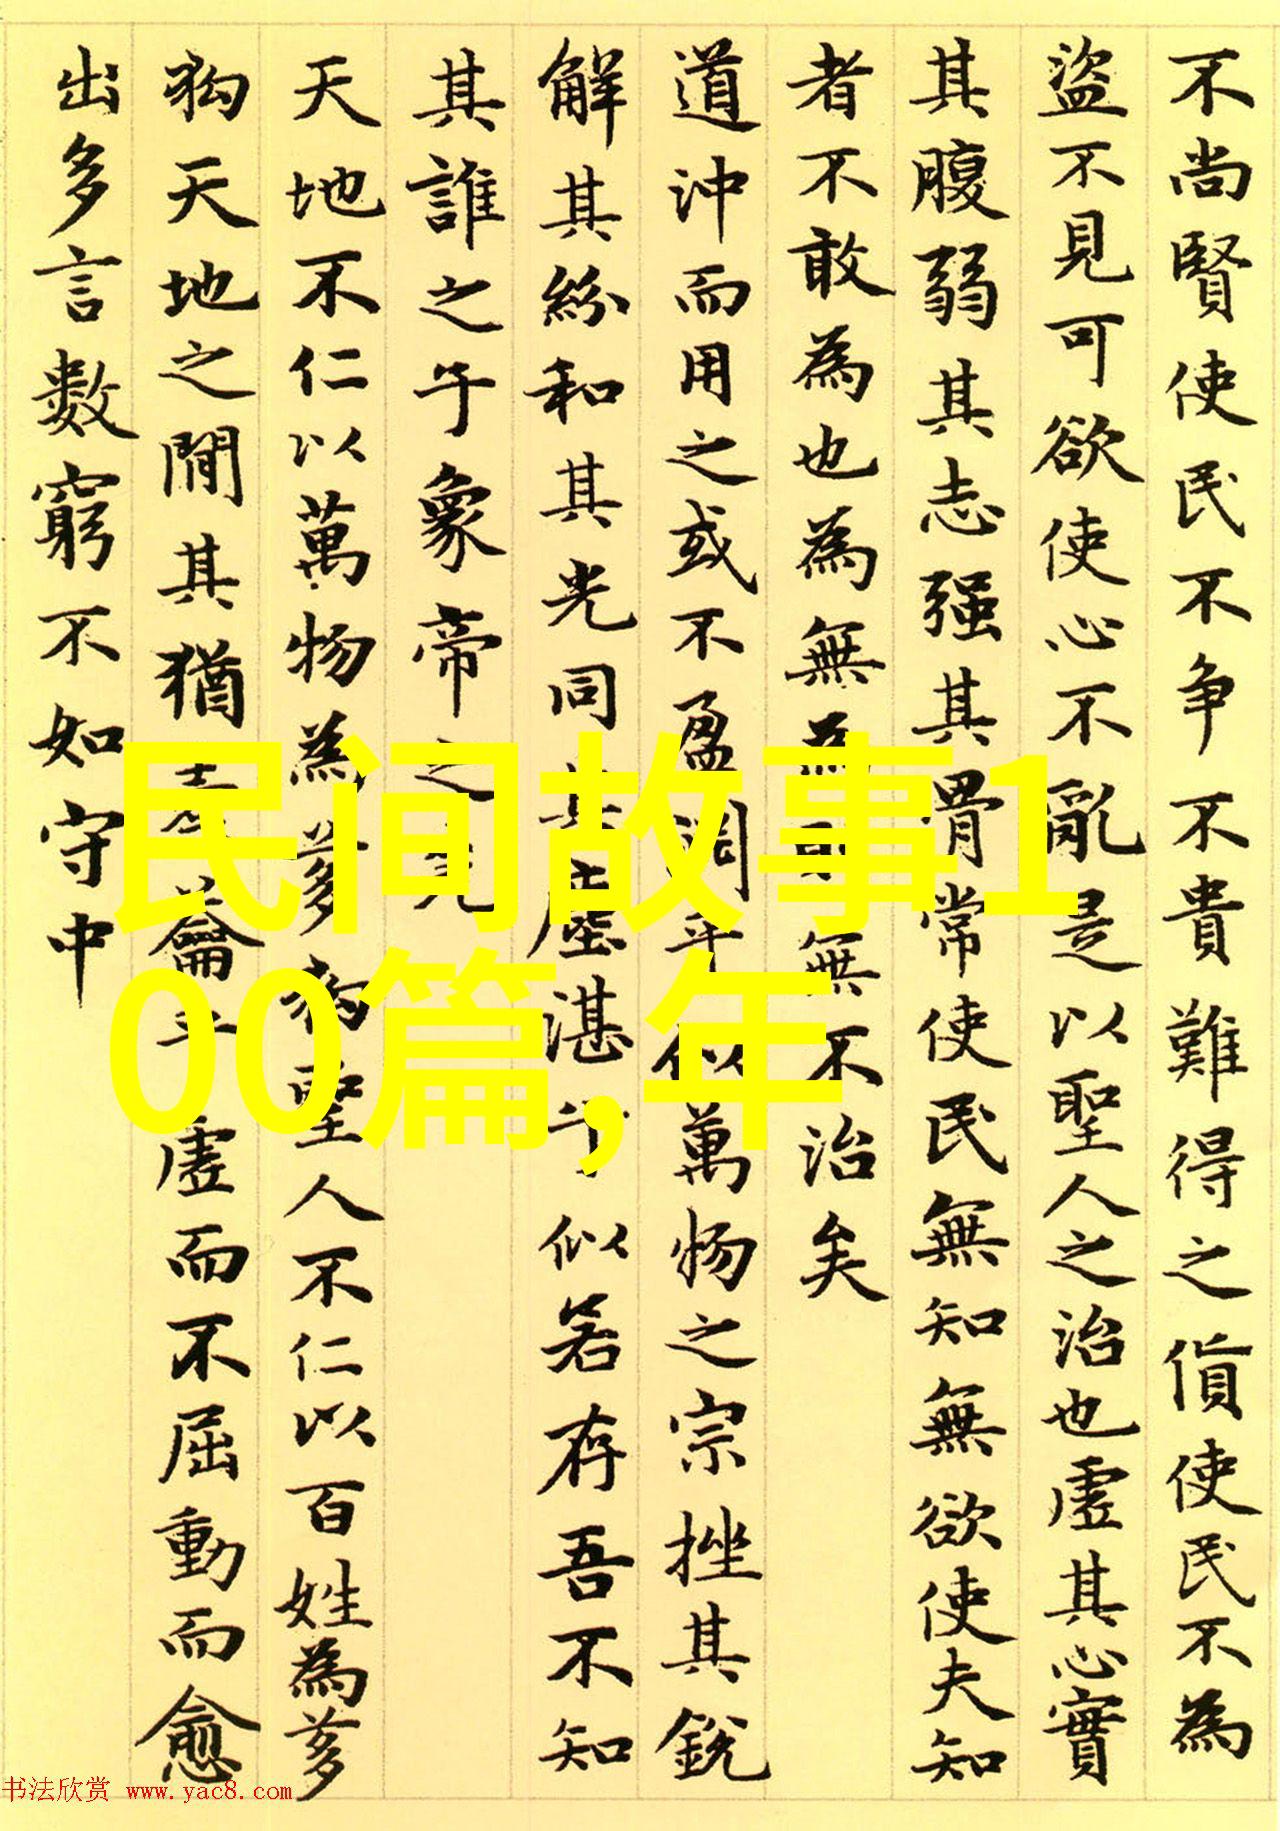 不尚賢使民不争不貴難得之貨使民不為
盜不見可欲使心不亂是以聖人之治也虛其心實
其腹弱其志强其骨常使民無知無欲使夫知
者不敢為也為無為則無不治矣
道沖而用之或不盈淵乎似萬物之宗挫其銳
解其紛和其光同其塵湛乎似若存吾不知
其誰之子象帝之先
天地不仁以萬物為芻狗聖人不仁以百姓為芻
狗天地之閒其猶橐籥乎虛而不屈動而愈
出多言數窮不如守中
民间故事1
00篇,年
书法欣赏 www.yac8.com